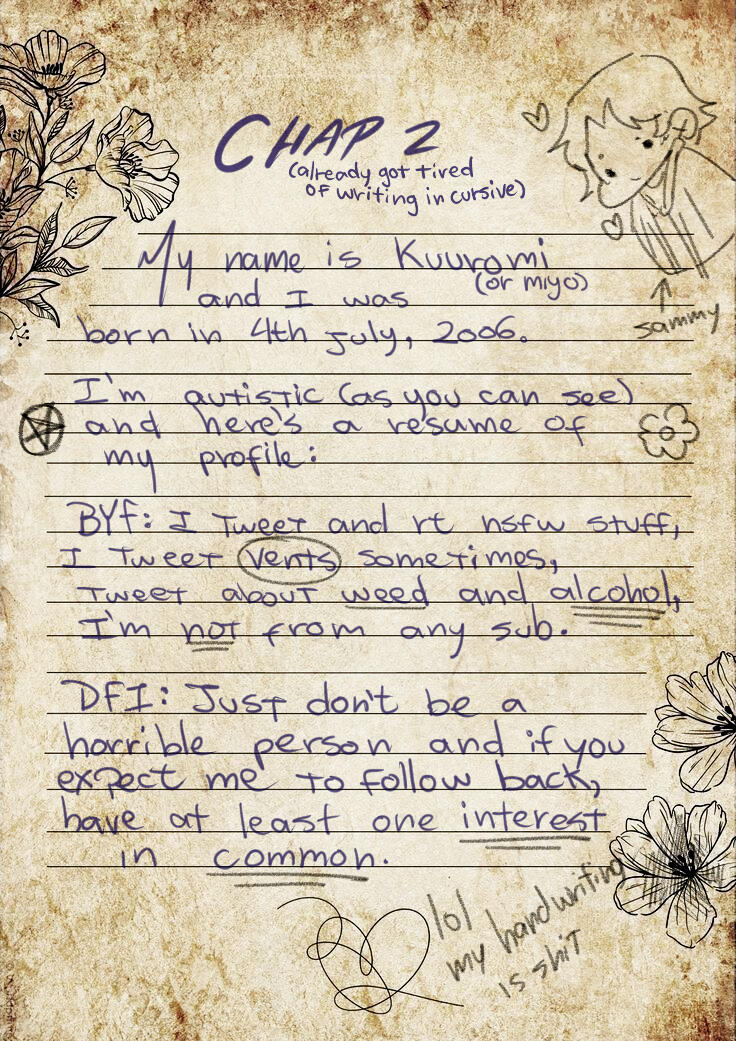 CHAP 2
(already got tired
of writing in cursive)
My name is Kuuromi
(or miyo)
and I was
born in 4th july, 2006.
sammy
I'm autistic (as you can see)
and here's a resume of
my profile:
BYf: I Tweet and rt nsfw stuff,
I Tweet vents sometimes,
Tweet about weed and alcohol,
I'm not from any sub.
DFI: Just don't be a
horrible person and if you
expect me to follow back,
have at least one interest
in common.
lol
my handwriting
is shit